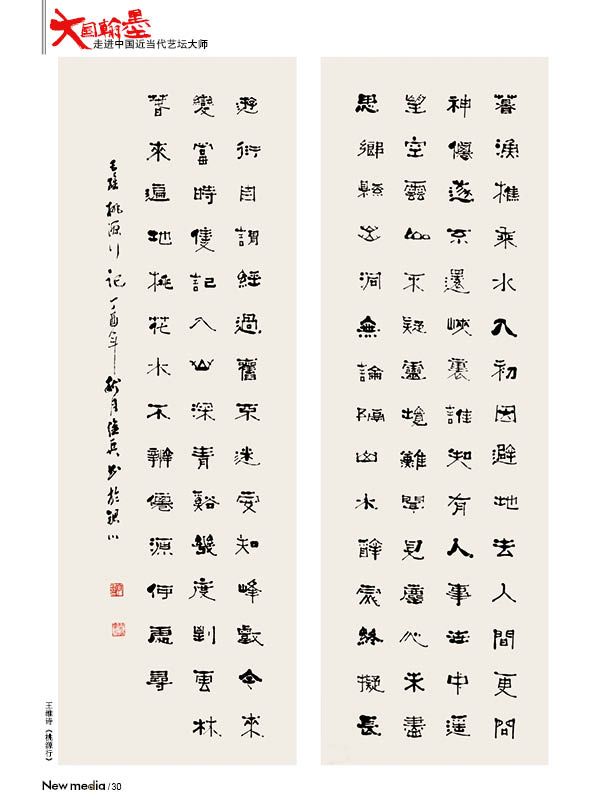 大国翰墨
走进中国近当代艺坛大师
暮漁樵乘水入初因避地去人間更問
神僊遂不還峽裏誰知有人事世中遥
望空雲山不疑靈境難聞見塵心未盡
思鄉縣出洞無論隔山水辭家終擬長
遊衍自謂經過舊不迷安知峰壑今來
變當時隻記入山深青谿幾度到雲林
春來遍地桃花水不辨僊源何處尋
王維桃源行记丁酉年秋月 书於銀川
王维诗《桃源行》
New media / 30